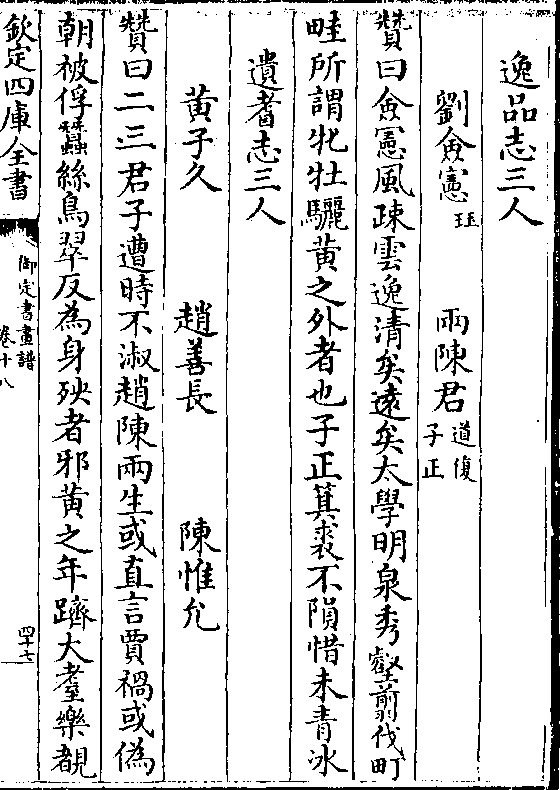 逸品志三人
劉僉憲 珏 兩陳君 道復 子正
贊曰僉憲風疎雲逸清矣遠矣太學明泉秀壑翦伐町
畦所謂牝牡驪黃之外者也子正箕裘不隕惜未青冰
遺耆志三人
黃子久 趙善長 陳惟允
贊曰二三君子遭時不淑趙陳兩生或直言賈禍或偽
朝被俘蠶絲鳥翠反為身殃者邪黃之年躋大耋樂覩
欽定四庫全書
御定書畫譜
卷十八
四十七